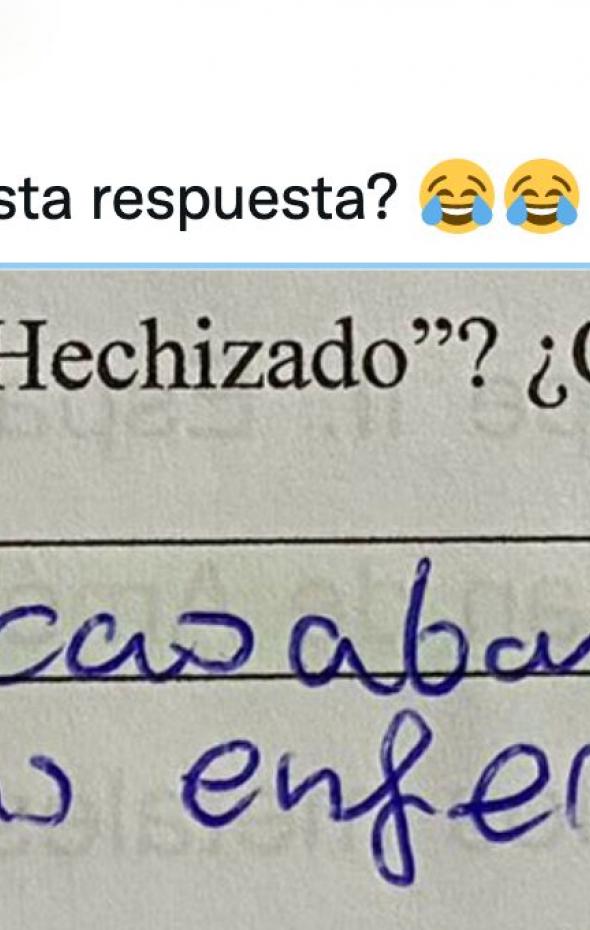 sta respuesta? 😂😂
Hechizado”? ¿
casaba
enfer